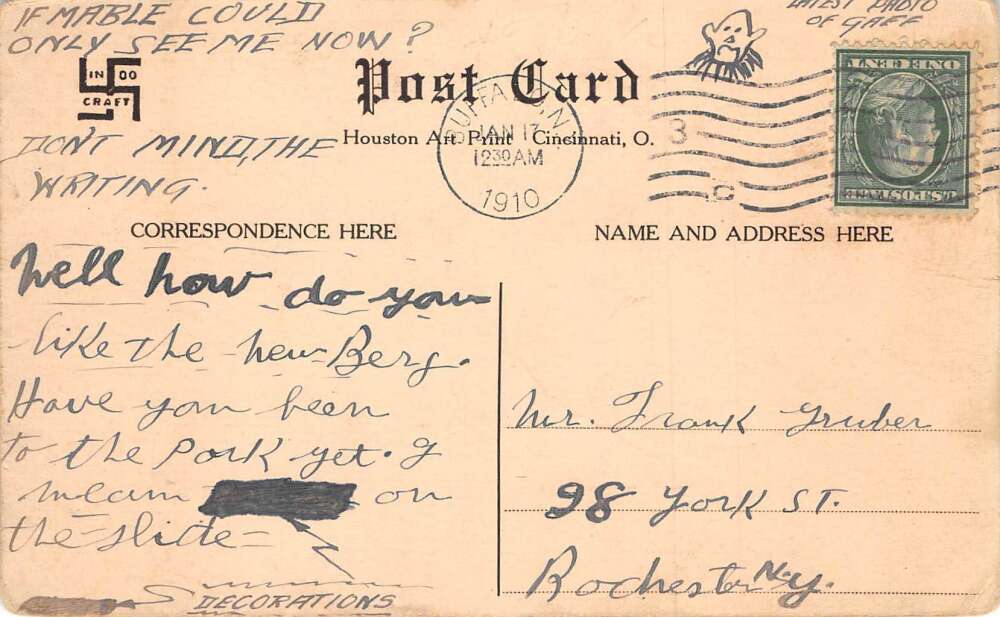 IF MABLE COULD
ONLY SEE ME NOW?
LATEST PHOTO
OF GAFF
IN DO
CRAFT
Post Card
DON'T MIND, THE
WRITING.
Houston Art Print Cincinnati, O.
BUFFALO, N
JAN 17
12 30 AM
1910
3
C
ONE CENT
U.S. POSTAGE
CORRESPONDENCE HERE
NAME AND ADDRESS HERE
Well how do you
like the new Berg.
Have you been
to the Park yet. I
mean on
the slide =
DECORATIONS
Mr. Frank Gruber
98 York ST.
Rochester N.Y.